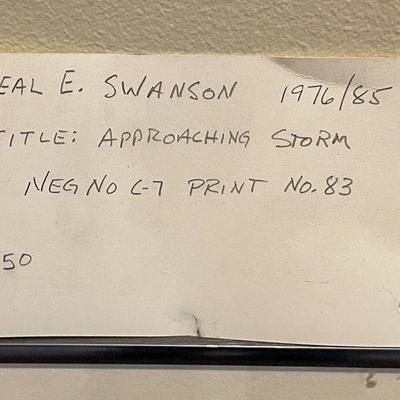 EAL E. SWANSON 1976/85
TITLE: APPROACHING STORM
NEG NO C-7 PRINT NO. 83
50